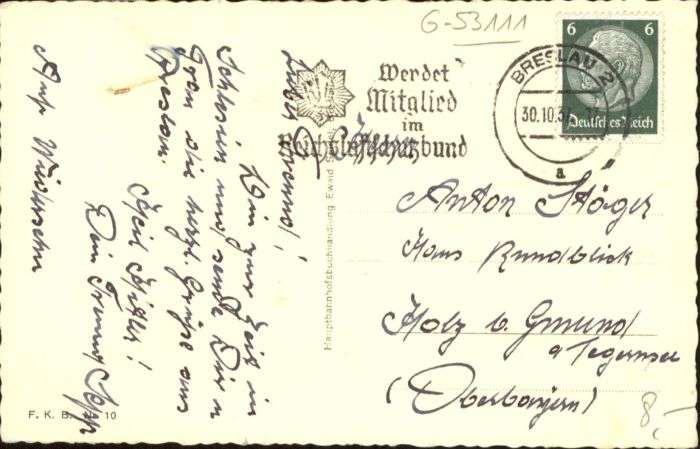 G-53111
Werdet
Mitglied
im
Reichsluftschutzbund
BRESLAU 2
30.10.3
a
6 6
Deutsches Reich
Herrn
Anton Stöger
Haus Rundblick
Holz b. Gmund
a Tegernsee
(Oberbayern)
8,-
Lieber Freund!
Bin zur Zeit in
Schlesien und sende Dir
die herzl. Grüße aus
Breslau.
Heil Hitler!
Dein Freund Sepp
Auf Wiedersehn
Hauptbahnhofsbuchhandlung Ewald
F. K. B. 10